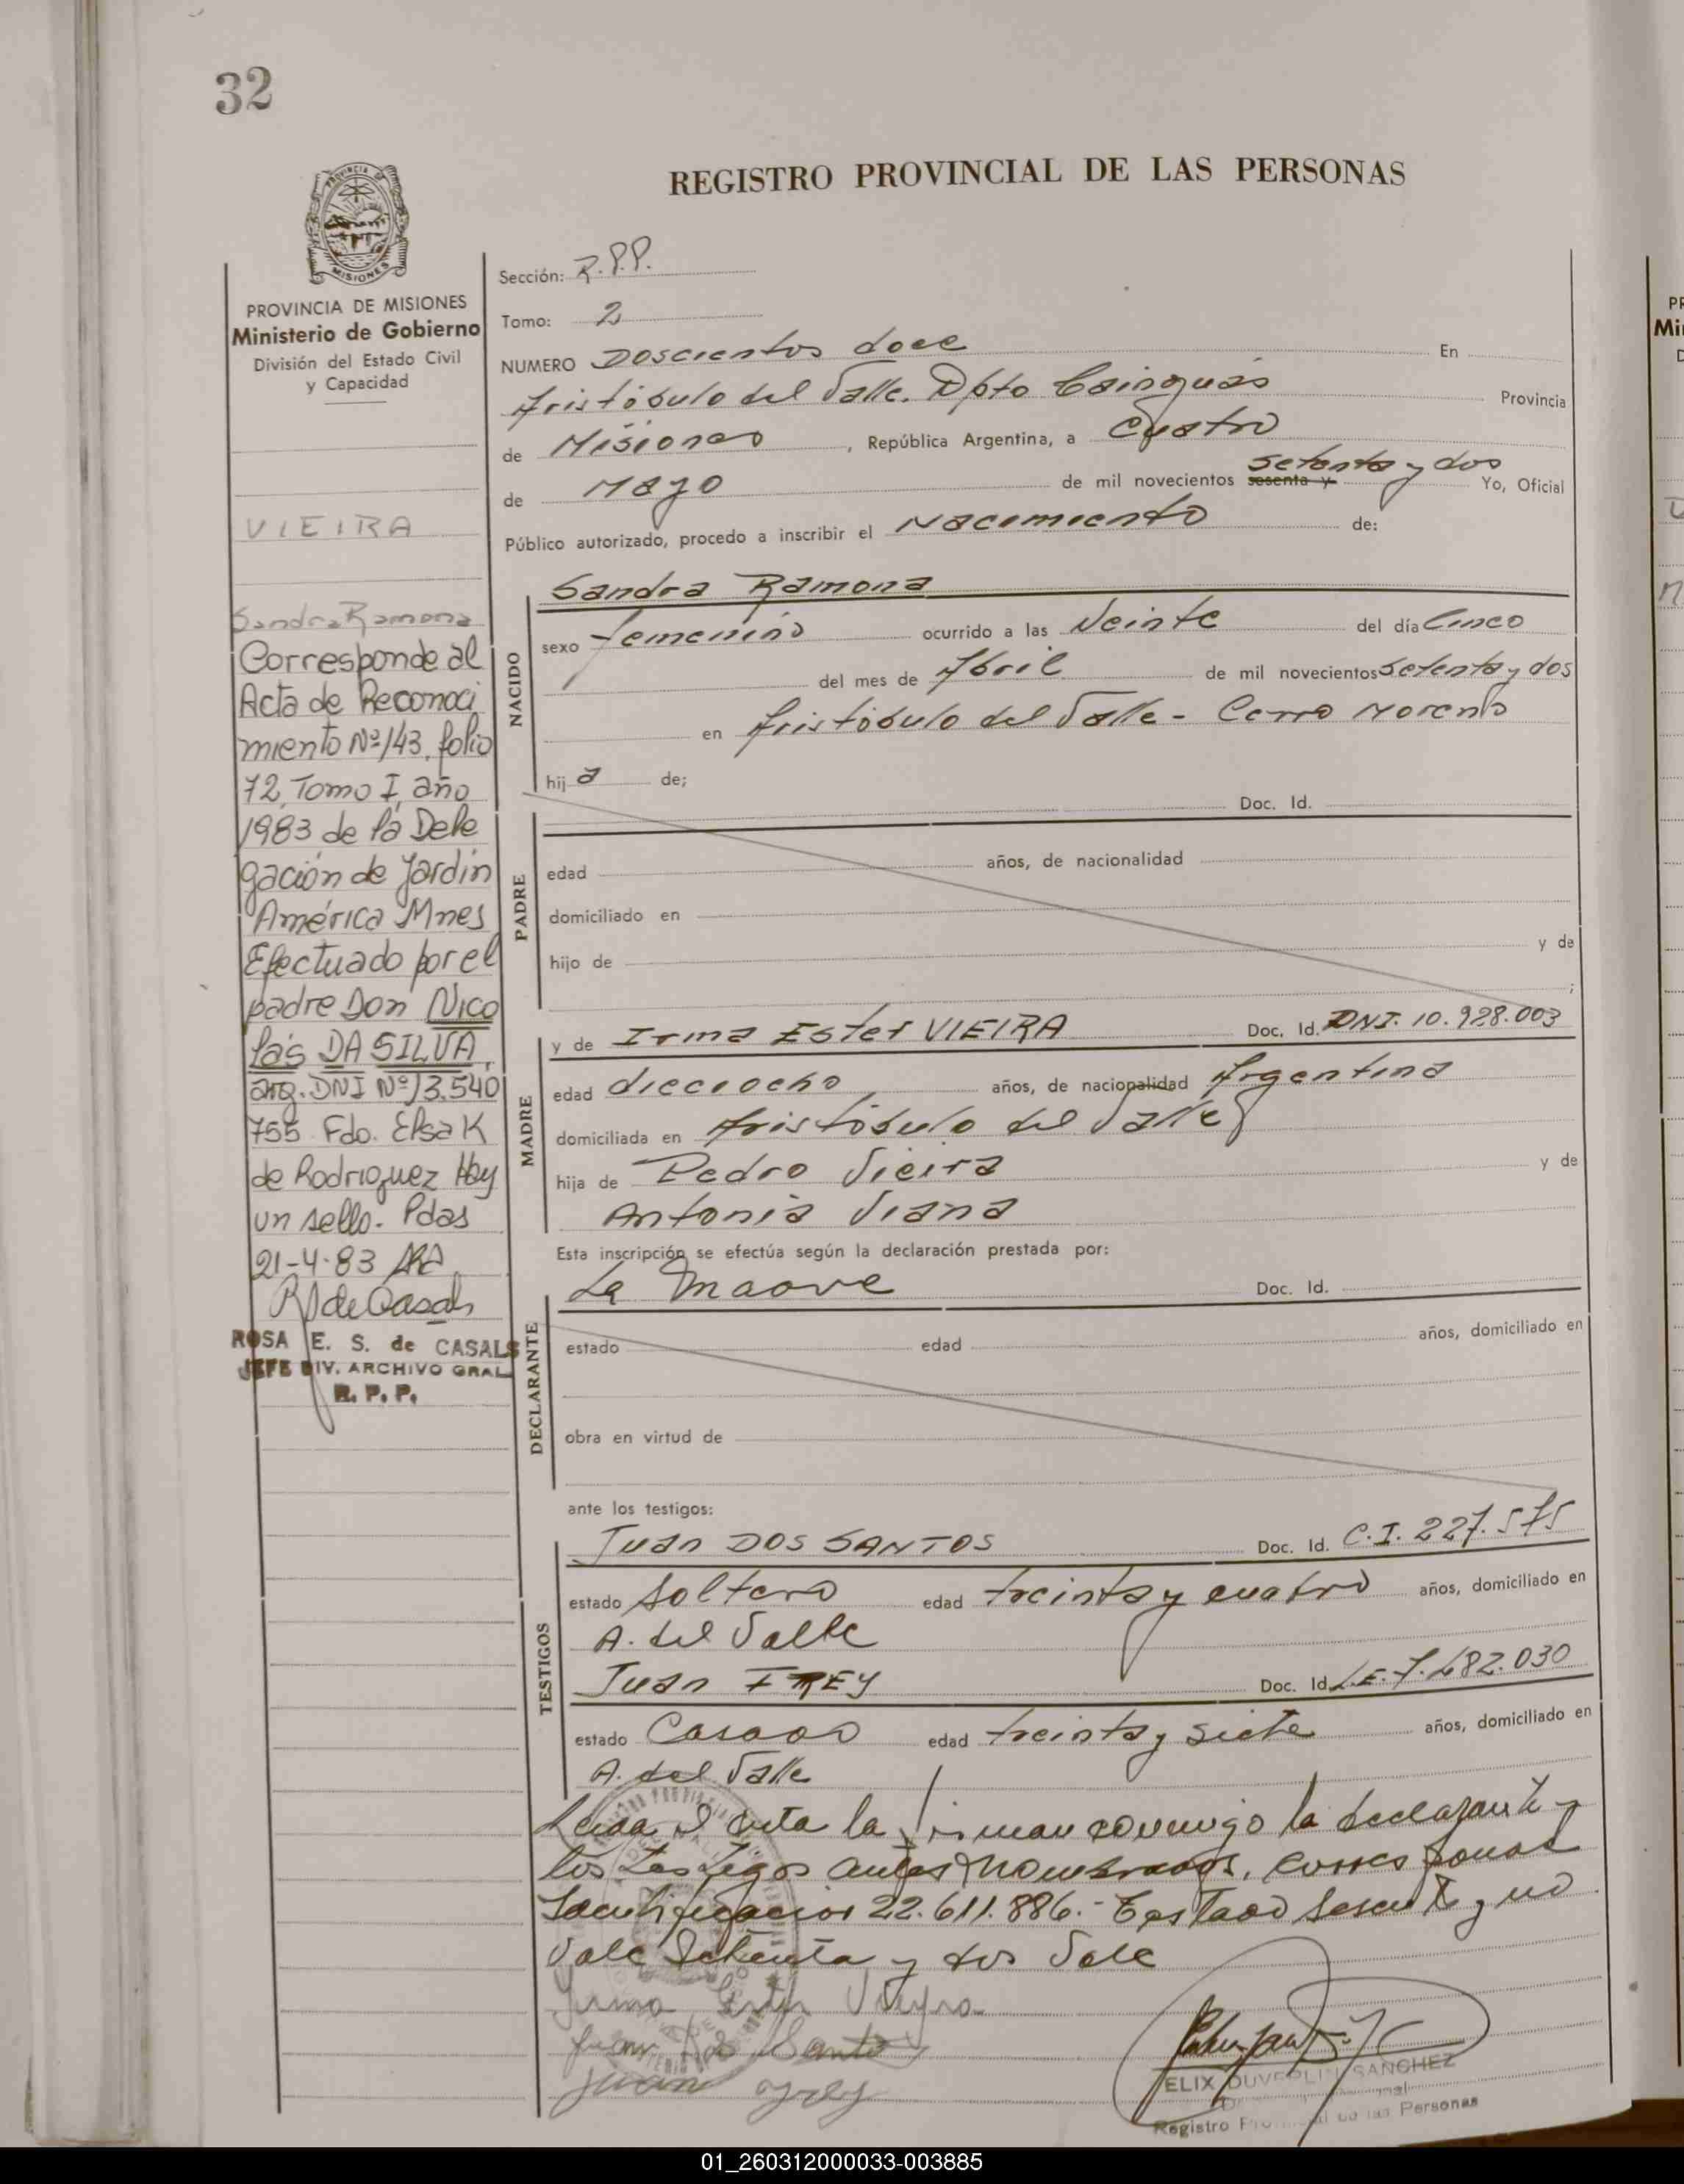 32
REGISTRO PROVINCIAL DE LAS PERSONAS
PROVINCIA DE
MISIONES
PROVINCIA DE MISIONES
Ministerio de Gobierno
División del Estado Civil
y Capacidad
VIEIRA
Sandra Ramona
Corresponde al
Acta de Reconoci
miento Nº 143, folio
72, Tomo I, año
1983 de la Dele
gación de Jardín
América Mnes
Efectuado por el
padre Don Nico
lás DA SILVA,
arg. DNI Nº 13.540
755 Fdo. Elsa K
de Rodriguez Hay
un sello. Pdas
21-4-83
ROSA E. S. de CASALS
JEFE DIV. ARCHIVO GRAL
R. P. P.
Sección: R.P.P.
Tomo: 2
NUMERO Doscientos doce En
Aristóbulo del Valle. Dpto Cainguás Provincia
de Misiones, República Argentina, a Cuatro
de Mayo de mil novecientos sesenta y setenta y dos Yo, Oficial
Público autorizado, procedo a inscribir el Nacimiento de:
NACIDO
Sandra Ramona
sexo femenino ocurrido a las Veinte del día Cinco
del mes de Abril de mil novecientos Setenta y dos
en Aristóbulo del Valle - Cerro Moreno
hij a de;
PADRE
Doc. Id.
edad años, de nacionalidad
domiciliado en
hijo de y de
;
MADRE
y de Irma Ester VIEIRA Doc. Id. DNI. 10.928.003
edad dieciocho años, de nacionalidad Argentina
domiciliada en Aristóbulo del Valle
hija de Pedro Vieira y de
Antonia Viana
Esta inscripción se efectúa según la declaración prestada por:
DECLARANTE
La Madre Doc. Id.
estado edad años, domiciliado en
obra en virtud de
ante los testigos:
TESTIGOS
Juan DOS SANTOS Doc. Id. C.I. 227.575
estado Soltero edad treinta y cuatro años, domiciliado en
A. del Valle
Juan FREY Doc. Id. L.E. 7.482.030
estado Casado edad treinta y siete años, domiciliado en
A. del Valle
Leida el Acta la firman conmigo la declarante y
los testigos antes nombrados,
22.611.886.- Testado sesenta y no
Vale Setenta y dos Vale
Juan Dos Santo
Juan Frey
SANCHEZ
Registro de las Personas
01_260312000033-003885